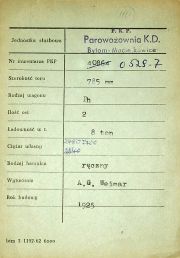 P. K. P.
Jednostka służbowa Parowozownia K.D.
Bytom-
Nr inwentarza PKP 0528-7
Szerokość toru 785 mm
Rodzaj wagonu
Ilość osi 2
Ładowność w t. 8 ton
Ciężar własny
Rodzaj hamulca ręczny
Wytwórnia A.G. Weimar
Rok budowy 1925